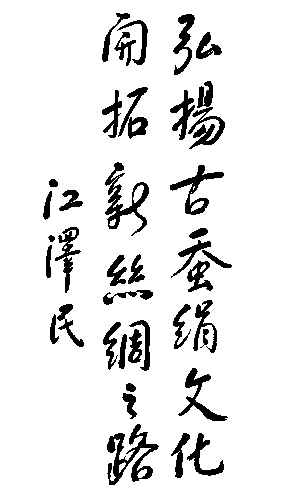 弘揚古蚕绢文化
開拓新絲綢之路
江澤民